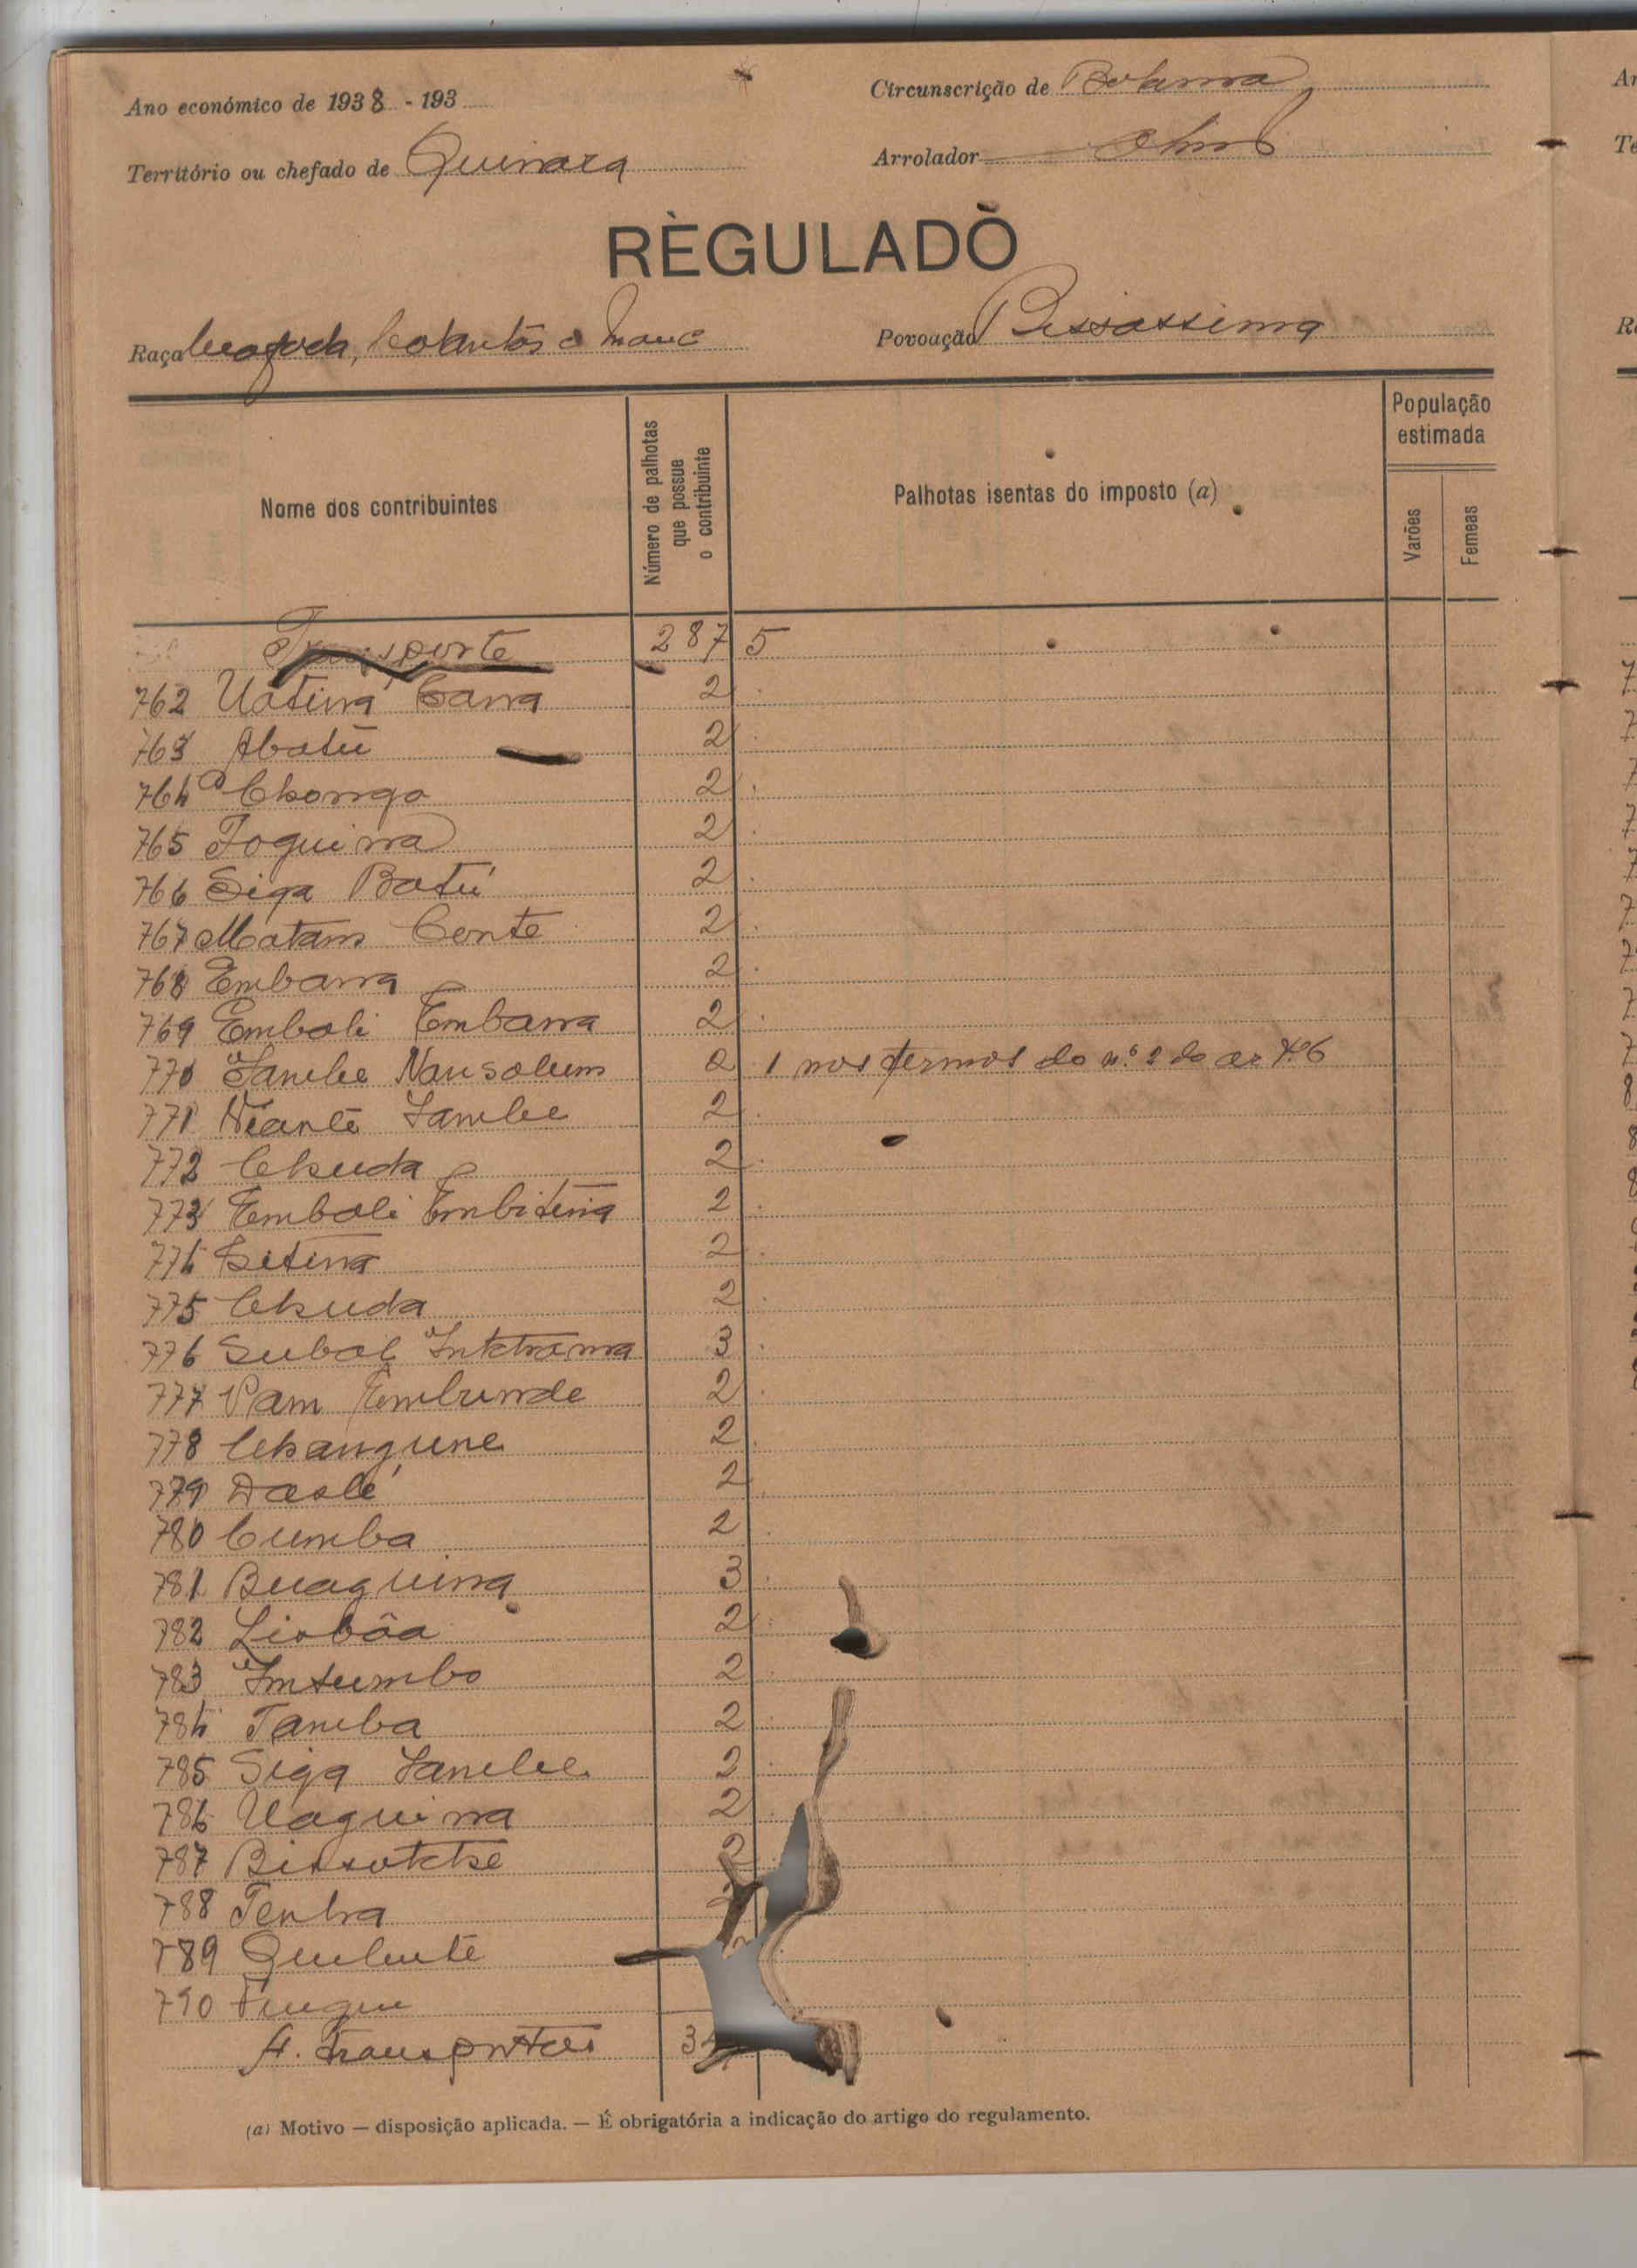 Ano económico de 1938 - 193
Circunscrição de Bolama
Território ou chefado de Quinara
Arrolador
RÈGULADÒ
Raça Beafada, Balantas e Manc
Povoação Bissassema
Nome dos contribuintes
Número de palhotas que possue o contribuinte
Palhotas isentas do imposto (a)
População estimada
Varões
Femeas
Transporte 287 5
762 Uatina Cana 2
763 Abatú 2
764 Chongo 2
765 Toquina 2
766 Siga Batú 2
767 Matam Conte 2
768 Embana 2
769 Embali Embana 2
770 Sambe Nansalum 2 1 nos termos do n.º 2 do ar
771 Sambe 2
772 Chuda 2
773 Embali Embitina 2
774 Bitina 2
775 Chuda 2
776 3
777 Pam Embunde 2
778 Changune 2
779 2
780 Cumba 2
781 Buaguina 3
782 Lisbôa 2
783 Imtumbo 2
784 Tamba 2
785 Siga Sambe 2
786 Uaquina 2
787 2
788 Tenba
789 Quebute
790
A transportar 34
(a) Motivo — disposição aplicada. — É obrigatória a indicação do artigo do regulamento.